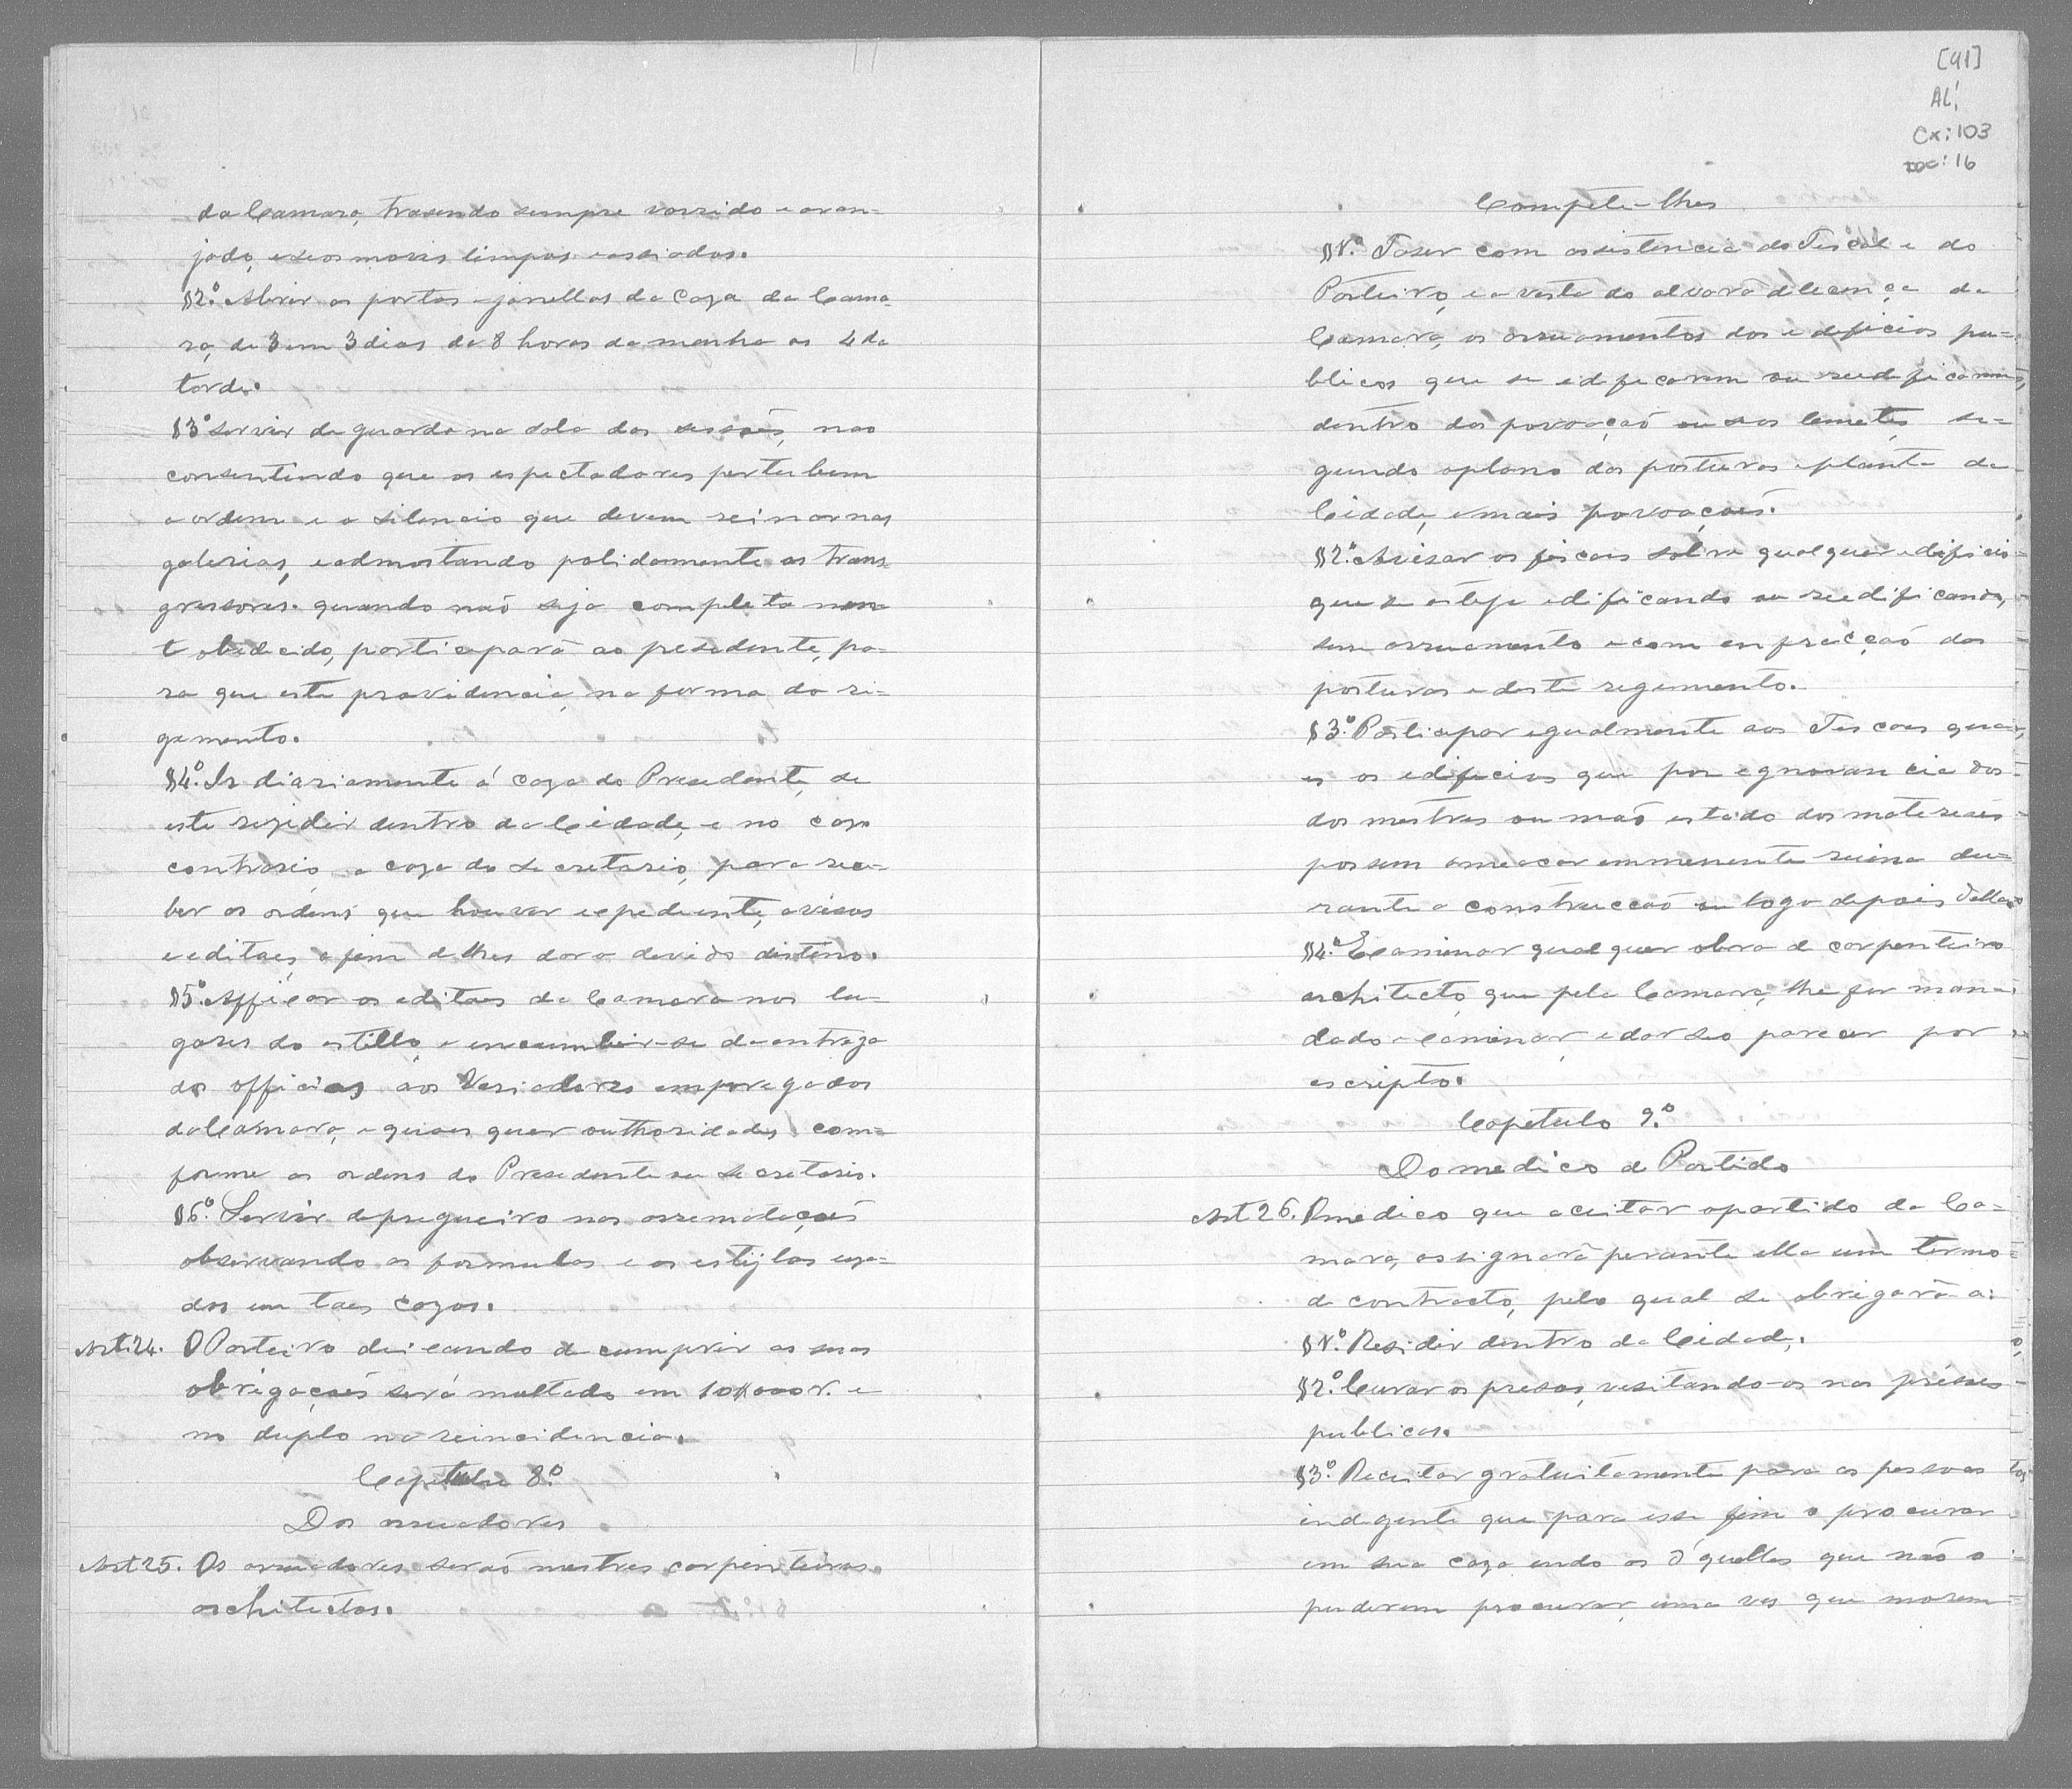 da Camara, trasendo sempre varrido e aran-
jado, e seos moveis limpos e assiados.
§2.º Abrir as portas e janellas da Caza da Cama-
ra, de 3 em 3 dias da 8 horas da manha as 4 da
tarde.
§3º Servir de guarda na sala das sessões, nao
consentindo que os espectadores pertubem
a ordem e o silencio que devem reinar nas
galerias, e admostando polidamente os trans-
gressores. quando naõ seja completa men
te obedecido, participará ao presedente, pa-
ra que este providencie, na forma do re-
gemento.
§4º. Ir diariamente á caza do Presedente, se
este rezidir dentro da Cidade, e no cazo
contrario, a caza do Secretario, para rece-
ber as ordens que houver expediente, avisos
e editaes, a fim de lhes dar o devido distino.
§5º. Afficar os editaes da Camara nos lu-
gares do estillo, e encumbir-se da entrega
dos officios aos Veriadores empregados
da Camara, e quaes quer authoridades com-
forme as ordens do Presedente ou Secretario.
§6º. Servir de pregueiro nas arrematações
observando as formulas e os estijlos uza-
dos em taes cazos.
Art.24. O Porteiro deixando de cumprir as suas
obrigações será multado em 10$000 r. e
no duplo na reincidencia.
Capetulo 8º.
Dos arruadores
Art 25. Os arruadores seraõ mestres carpinteiros
architectos.
[91]
AL!
Cx: 103
Doc: 16
Compete-lhes
§1.º Faser com assistencia do Fiscal e do
Porteiro, e a vista do alvará de licença da
Camara, os arruamentos dos edeficios pu-
blicos que se edeficarem ou reedeficarem,
dentro das povoaçaõ ou seos lemetes, se-
gundo o plano das posturas e planta da
Cidade, e mais povoações.
§2.º Avisar os fiscaes sobre qualquer edificio
que se esteja edificando ou reedificando,
sem arruamento e com enfracçaõ das
posturas e deste regemento.
§3º. Participar egualmente aos Fiscaes qua-
es os edificios que por egnorancia dos
dos mestres ou maõ estado dos matereaes
possam ameacar emmenente ruina du-
rante a construccaõ ou logo depois dellas
§4.º Examinar qualquer obra de carpenteiro
architecto, que pela Camara, lhe for man-
dado examinar, e dar seo parecer por
escripto.
Capetulo 9.º
Do medico de Partido
Art 26. O medico que aceitar o partido da Ca-
mara, assignará perante ella um termo
de contracto, pelo qual se obrigará a:
§1.º Residir dentro da Cidade,
§2.º Curar os presos, vesitando-os nas prisões
publicas.
§3º. Receitar gratuitamente para as pessoas
indegente que para esse fim o procurar
em sua caza indo as d'quellas que não o
puderem procurar, uma ves que morem